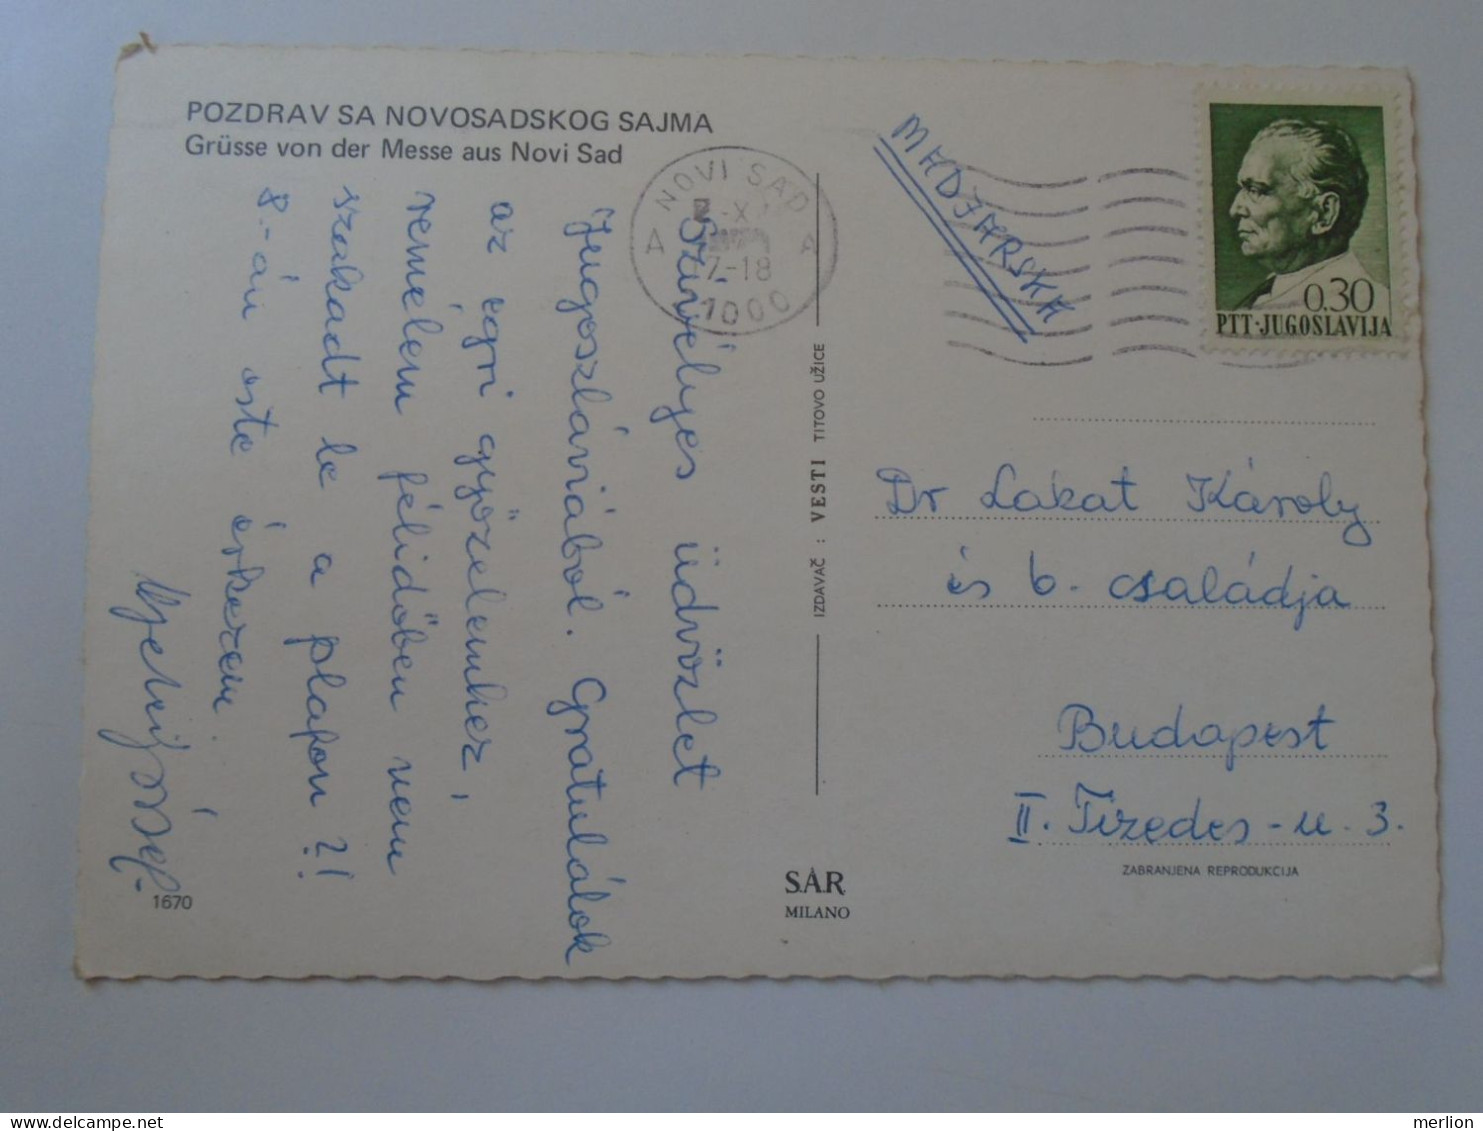 POZDRAV SA NOVOSADSKOG SAJMA
Grüsse von der Messe aus Novi Sad
Szívélyes üdvözlet
Jugoszláviából. Gratulálok
az egri győzelemhez,
remélem félidőben nem
szakadt le a plafon?!
8.-án este érkezem
1670
NOVI SAD
A A
-X
17-18
1000
MADJARSKA
0.30
PTT·JUGOSLAVIJA
IZDAVAČ : VESTI TITOVO UŽICE
Dr Lakat Károly
és b. családja
Budapest
II. Tizedes-u. 3.
ZABRANJENA REPRODUKCIJA
S.A.R.
MILANO
merlion